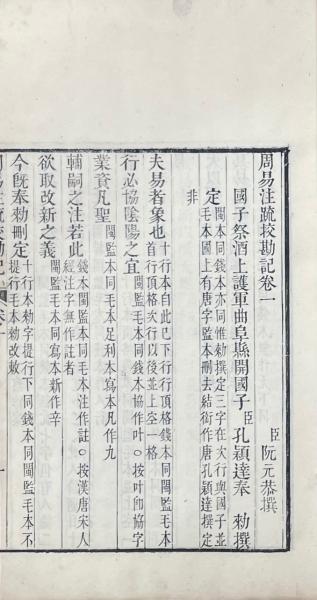 周易注疏挍勘記卷一
臣阮元恭撰
國子祭酒上護軍曲阜縣開國子臣孔穎達奉 勑撰
定閩本同錢本亦同惟勑撰定三字在次行與國子並
毛本國上有唐字監本刪去結銜作唐孔穎達撰定
非
夫易者象也十行本自此已下行行頂格錢本同閩監毛本
首行頂格次行以後並上空一格
行必協陰陽之宜閩監本同錢本協作叶○按叶卽協字
業資凡聖閩監本同毛本足利本寫本凡作九
輔嗣之注若此錢本閩監本同毛本注作註○按漢唐宋人
經注字無作註者
欲取改新之義閩監毛本同寫本新作辛
今旣奉勑刪定十行本勑字提行下同錢本同閩監毛本不
提行毛本勑改敕